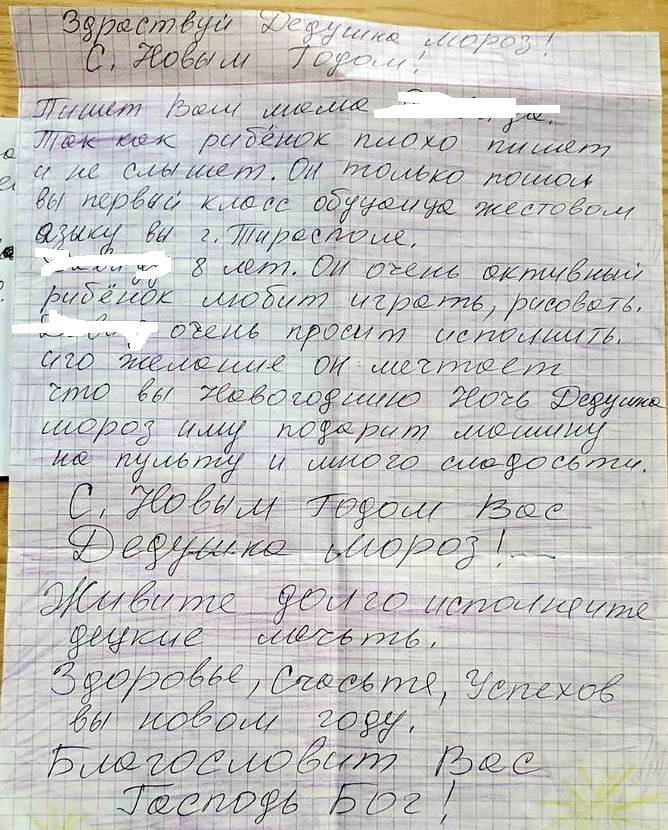 Здраствуй Дедушка мороз!
С. Новым Годом!
Пишет Вам мама
Так как рибёнок плохо пишет
и не слышет. Он только пошол
вы первый класс обуцаица жестовом
азыку вы г. Тирасполе.
8 лет. Он очень активный
рибёнок любит играть, рисовать.
очень просит исполнить.
иго желание он мечтает
что вы Новогоднию Ночь Дедушка
мороз иму подарит машину
на пульту и много сладосьти.
С. Новым Годом Вас
Дедушка мороз!
Живите долго исполнеите
децкие мечьть.
Здоровье, Счасьте, Успехов
вы новом году.
Благословит Вас
Гасподь Бог!